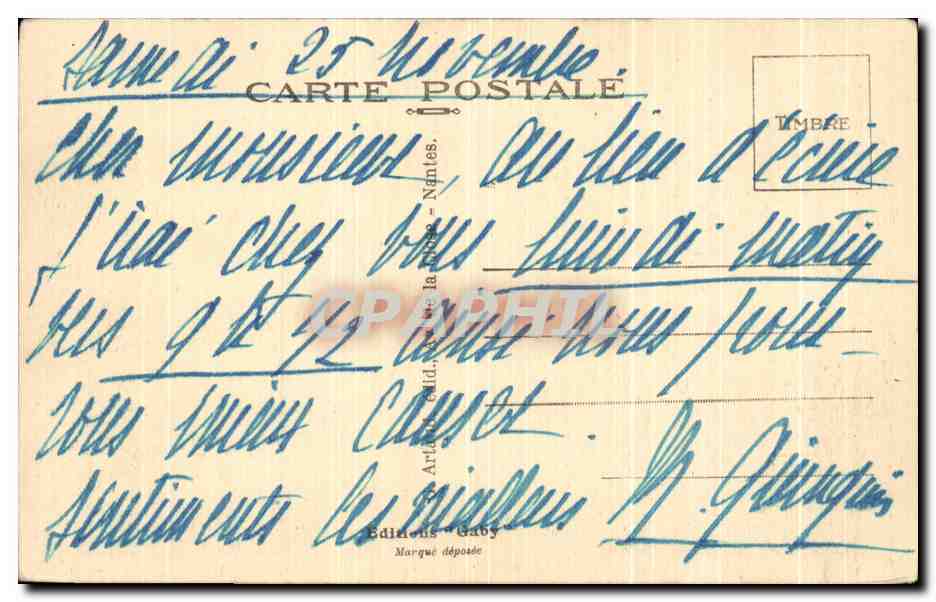 Samedi 25 Novembre.
CARTE POSTALE
TIMBRE
Cher monsieur, au lieu d'écrire
j'irai chez vous lundi matin
vers 9 h 1/2 ainsi nous pour-
rons mieux causer.
Sentiments les meilleurs
M.
Artaud, édit., de la Nantes.
Editions "Gaby"
Marque déposée
CPAPHIL